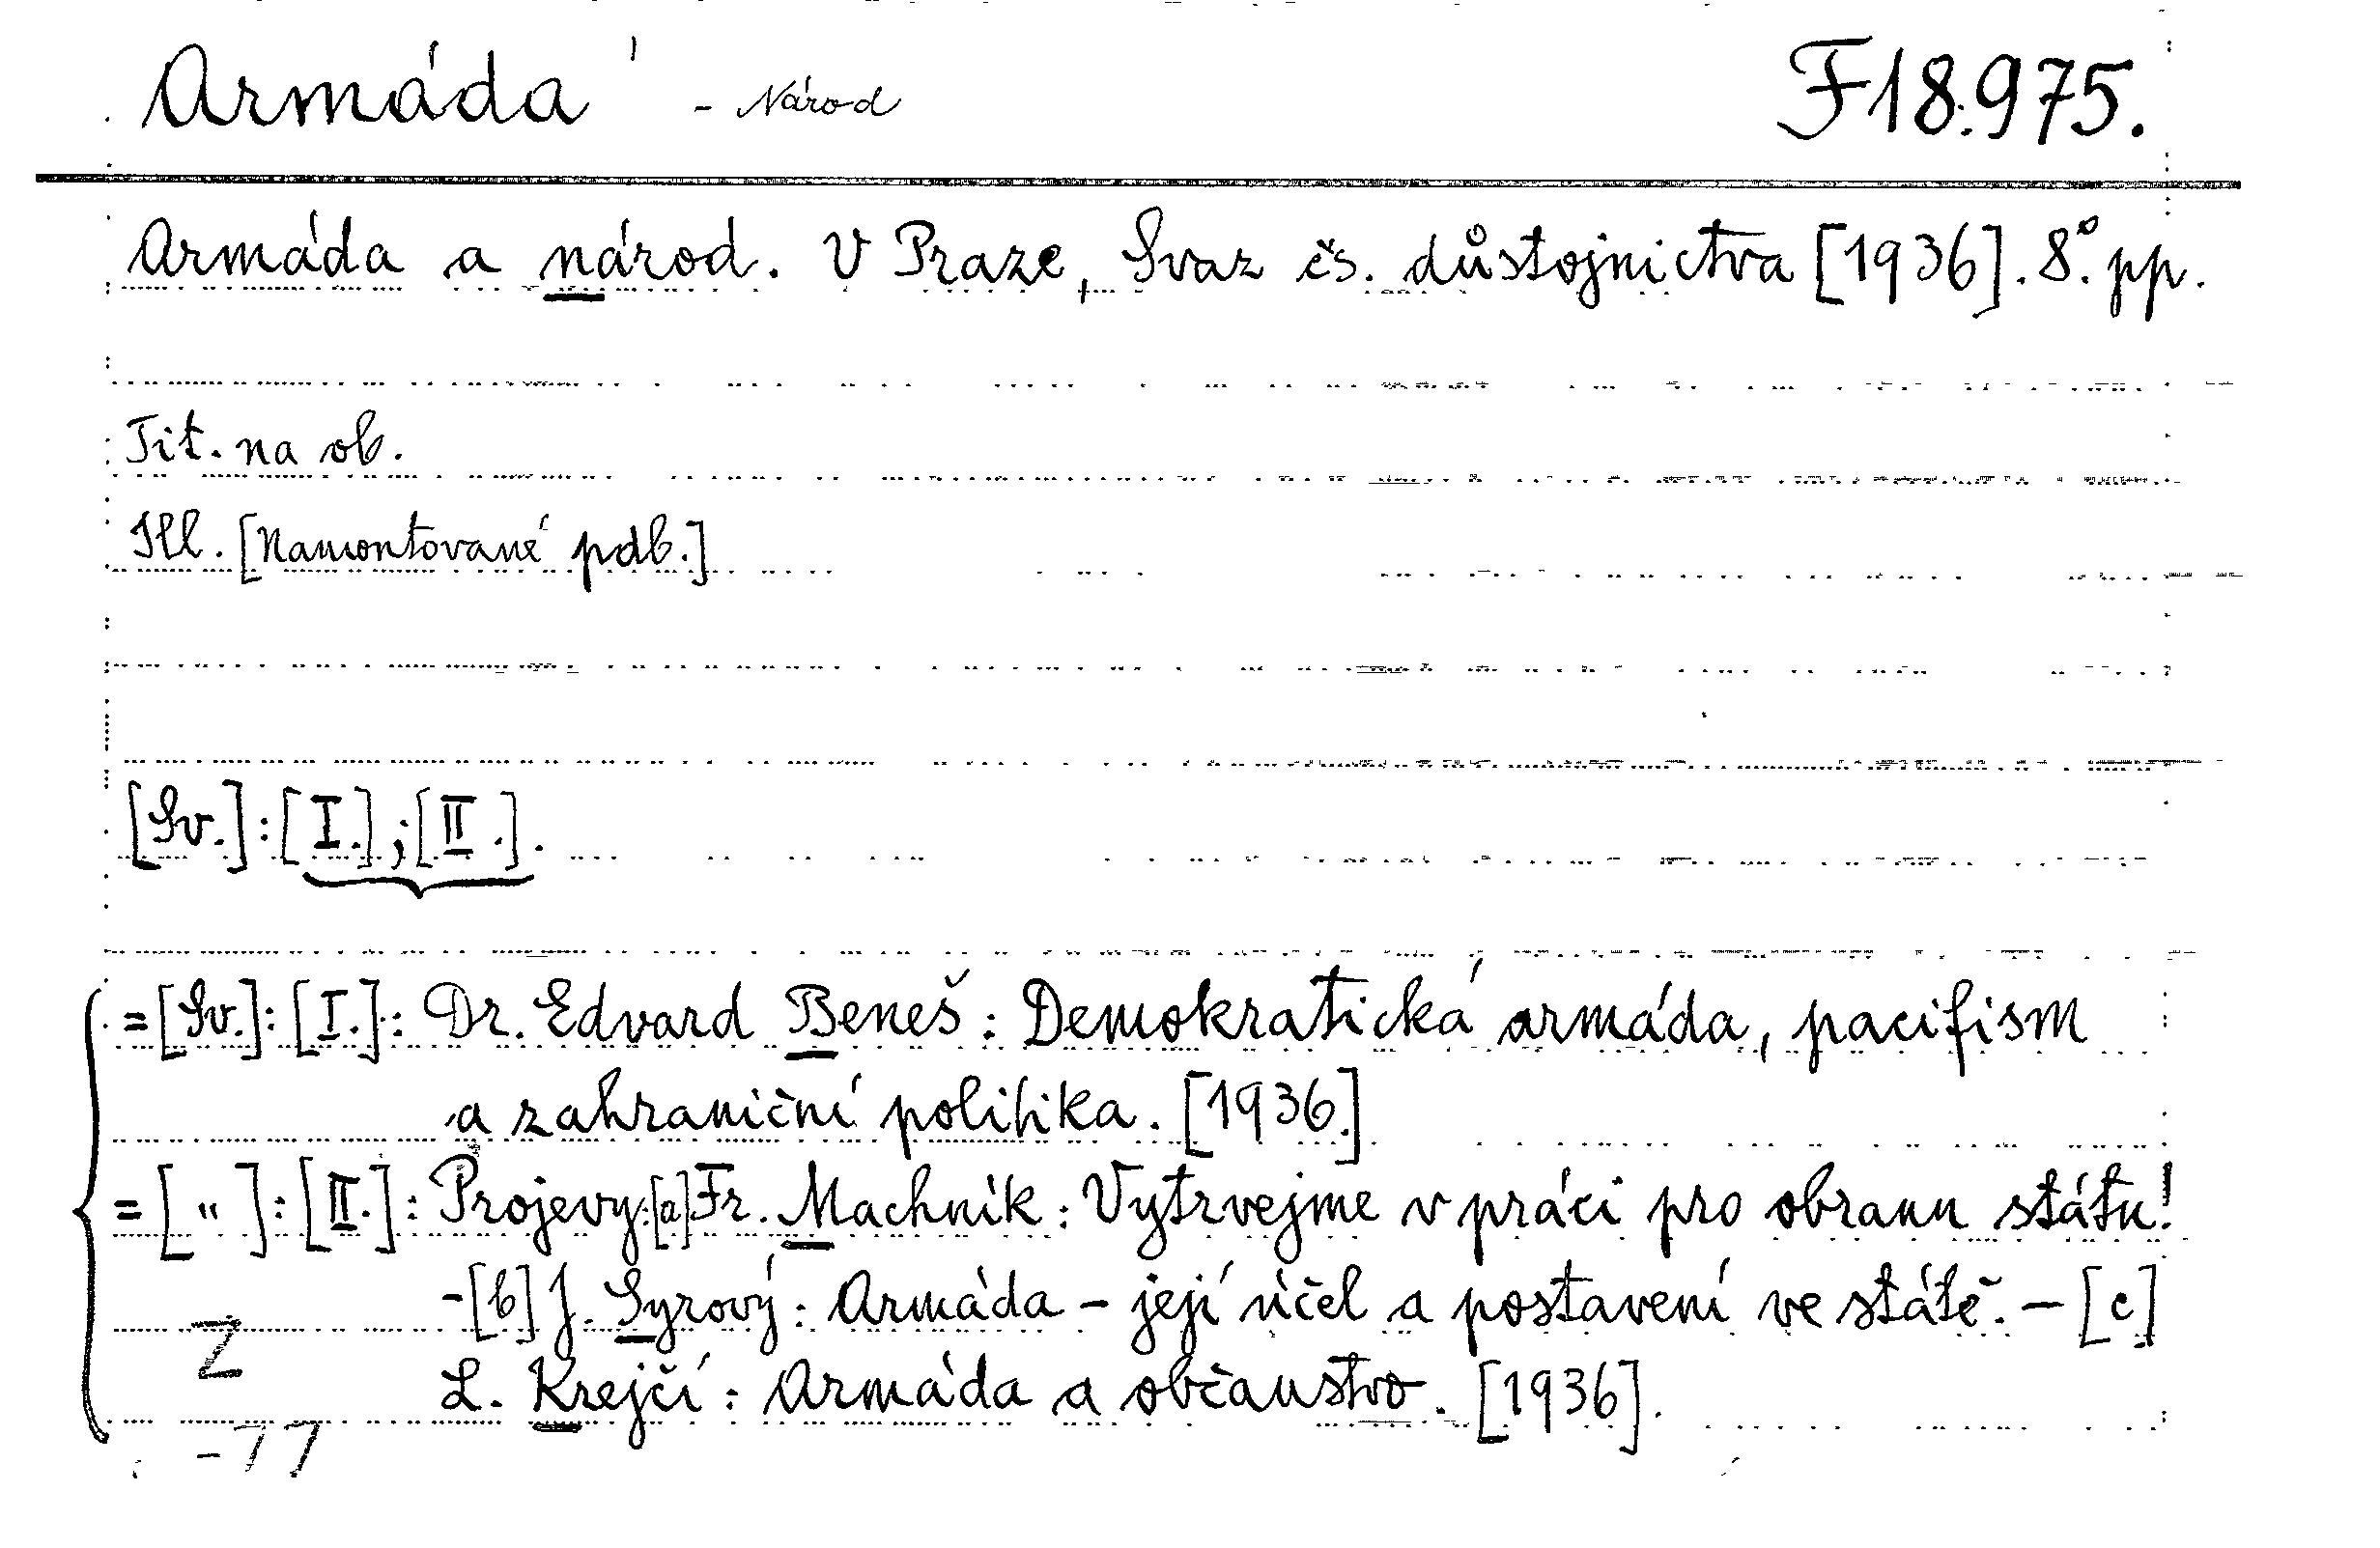 Armáda - Národ F 18.975.
Armáda a národ. V Praze, Svaz čs. důstojnictva [1936]. 8°. pp.
Tit. na ob.
Ill. [Namontované pdb.]
[Sv.]: [I.]; [II.].
= [Sv.]: [I.]: Dr. Edvard Beneš: Demokratická armáda, pacifism
a zahraniční politika. [1936.]
= [ " ]: [II.]: Projevy: [a] Fr. Machník: Vytrvejme v práci pro obranu státu!
- [b] J. Syrový: Armáda - její účel a postavení ve státě. - [c]
Z
L. Krejčí: Armáda a občanstvo. [1936].
-77